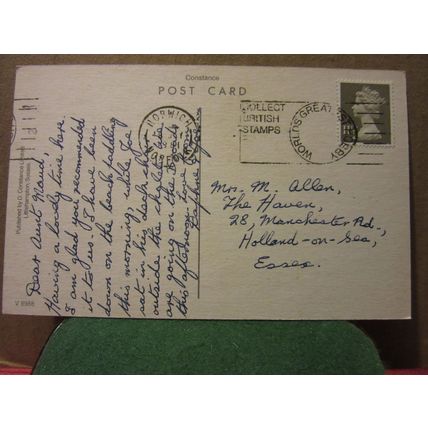 Constance
POST CARD
COLLECT
BRITISH
STAMPS
WORLD'S GREATEST HOBBY
NORWICH
Published by D. Constance Limited,
Littlehampton Sussex
V 8988
Dear Aunt
Having a lovely time here.
I am glad you recommended
it to us. I have been
down on the beach paddling
this morning, while Joe
sat in his deck chair
outside the chalet. We
are going on the Broads
this afternoon. Love from
Mrs. M. Allen,
The Haven,
28, Manchester Rd.,
Holland-on-Sea,
Essex.